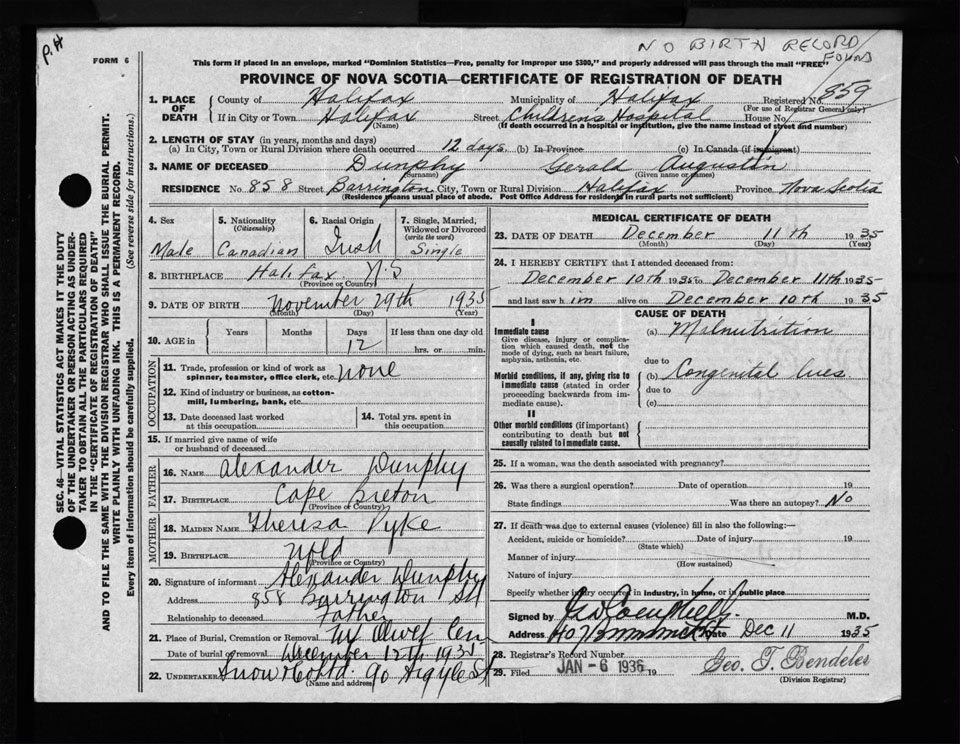 P.H
NO BIRTH RECORD
FOUND
FORM 6
This form if placed in an envelope, marked "Dominion Statistics—Free, penalty for improper use $300," and properly addressed will pass through the mail "FREE"
PROVINCE OF NOVA SCOTIA—CERTIFICATE OF REGISTRATION OF DEATH
859
1. PLACE OF DEATH { County of Halifax Municipality of Halifax Registered No.
(For use of Registrar General only)
If in City or Town Halifax Street Childrens Hospital House No.
(Name) (If death occurred in a hospital or institution, give the name instead of street and number)
2. LENGTH OF STAY (in years, months and days)
(a) In City, Town or Rural Division where death occurred 12 days. (b) In Province (c) In Canada (if immigrant)
3. NAME OF DECEASED Dunphy Gerald Augustin
(Surname) (Given name or names)
RESIDENCE No. 858 Street Barrington City, Town or Rural Division Halifax Province Nova Scotia
(Residence means usual place of abode. Post Office Address for residents in rural parts not sufficient)
SEC. 46—VITAL STATISTICS ACT MAKES IT THE DUTY
OF THE UNDERTAKER OR PERSON ACTING AS UNDER-
TAKER TO OBTAIN ALL THE PARTICULARS REQUIRED
IN THE "CERTIFICATE OF REGISTRATION OF DEATH"
AND TO FILE THE SAME WITH THE DIVISION REGISTRAR WHO SHALL ISSUE THE BURIAL PERMIT.
WRITE PLAINLY WITH UNFADING INK. THIS IS A PERMANENT RECORD.
Every item of information should be carefully supplied. (See reverse side for instructions.)
4. Sex Male
5. Nationality (Citizenship) Canadian
6. Racial Origin Irish
7. Single, Married, Widowed or Divorced (write the word) Single
8. BIRTHPLACE Halifax N.S
(Province or Country)
9. DATE OF BIRTH November 29th 1935
(Month) (Day) (Year)
10. AGE in Years Months Days 12 If less than one day old
hrs. or min.
OCCUPATION
11. Trade, profession or kind of work as
spinner, teamster, office clerk, etc. none
12. Kind of industry or business, as cotton-
mill, lumbering, bank, etc.
13. Date deceased last worked
at this occupation
14. Total yrs. spent in
this occupation
15. If married give name of wife
or husband of deceased
FATHER
16. NAME Alexander Dunphy
17. BIRTHPLACE Cape Breton
(Province or Country)
MOTHER
18. MAIDEN NAME Theresa Vyke
19. BIRTHPLACE Nfld
(Province or Country)
20. Signature of informant Alexander Dunphy
Address 858 Barrington St
Relationship to deceased Father
21. Place of Burial, Cremation or Removal Mt Olivet Cem
Date of burial or removal December 12th 1935
22. UNDERTAKER Snow & Co Ltd. 90 Argyle St
(Name and address)
MEDICAL CERTIFICATE OF DEATH
23. DATE OF DEATH December 11th 1935
(Month) (Day) (Year)
24. I HEREBY CERTIFY that I attended deceased from:
December 10th 1935 to December 11th 1935
and last saw him alive on December 10th 1935
CAUSE OF DEATH
I
Immediate cause
Give disease, injury or complica-
tion which caused death, not the
mode of dying, such as heart failure,
asphyxia, asthenia, etc.
(a) Malnutrition
due to
Morbid conditions, if any, giving rise to
immediate cause (stated in order
proceeding backwards from im-
mediate cause).
(b) Congenital lues.
due to
(c)
II
Other morbid conditions (if important)
contributing to death but not
causally related to immediate cause.
25. If a woman, was the death associated with pregnancy?
26. Was there a surgical operation? Date of operation 19
State findings Was there an autopsy? No
27. If death was due to external causes (violence) fill in also the following:—
Accident, suicide or homicide? Date of injury 19
(State which)
Manner of injury
(How sustained)
Nature of injury
Specify whether injury occurred in industry, in home, or in public place
Signed by M.D.
Address Date Dec 11 1935
28. Registrar's Record Number
29. Filed JAN - 6 1936 19 Geo. T. Bendeler
(Division Registrar)